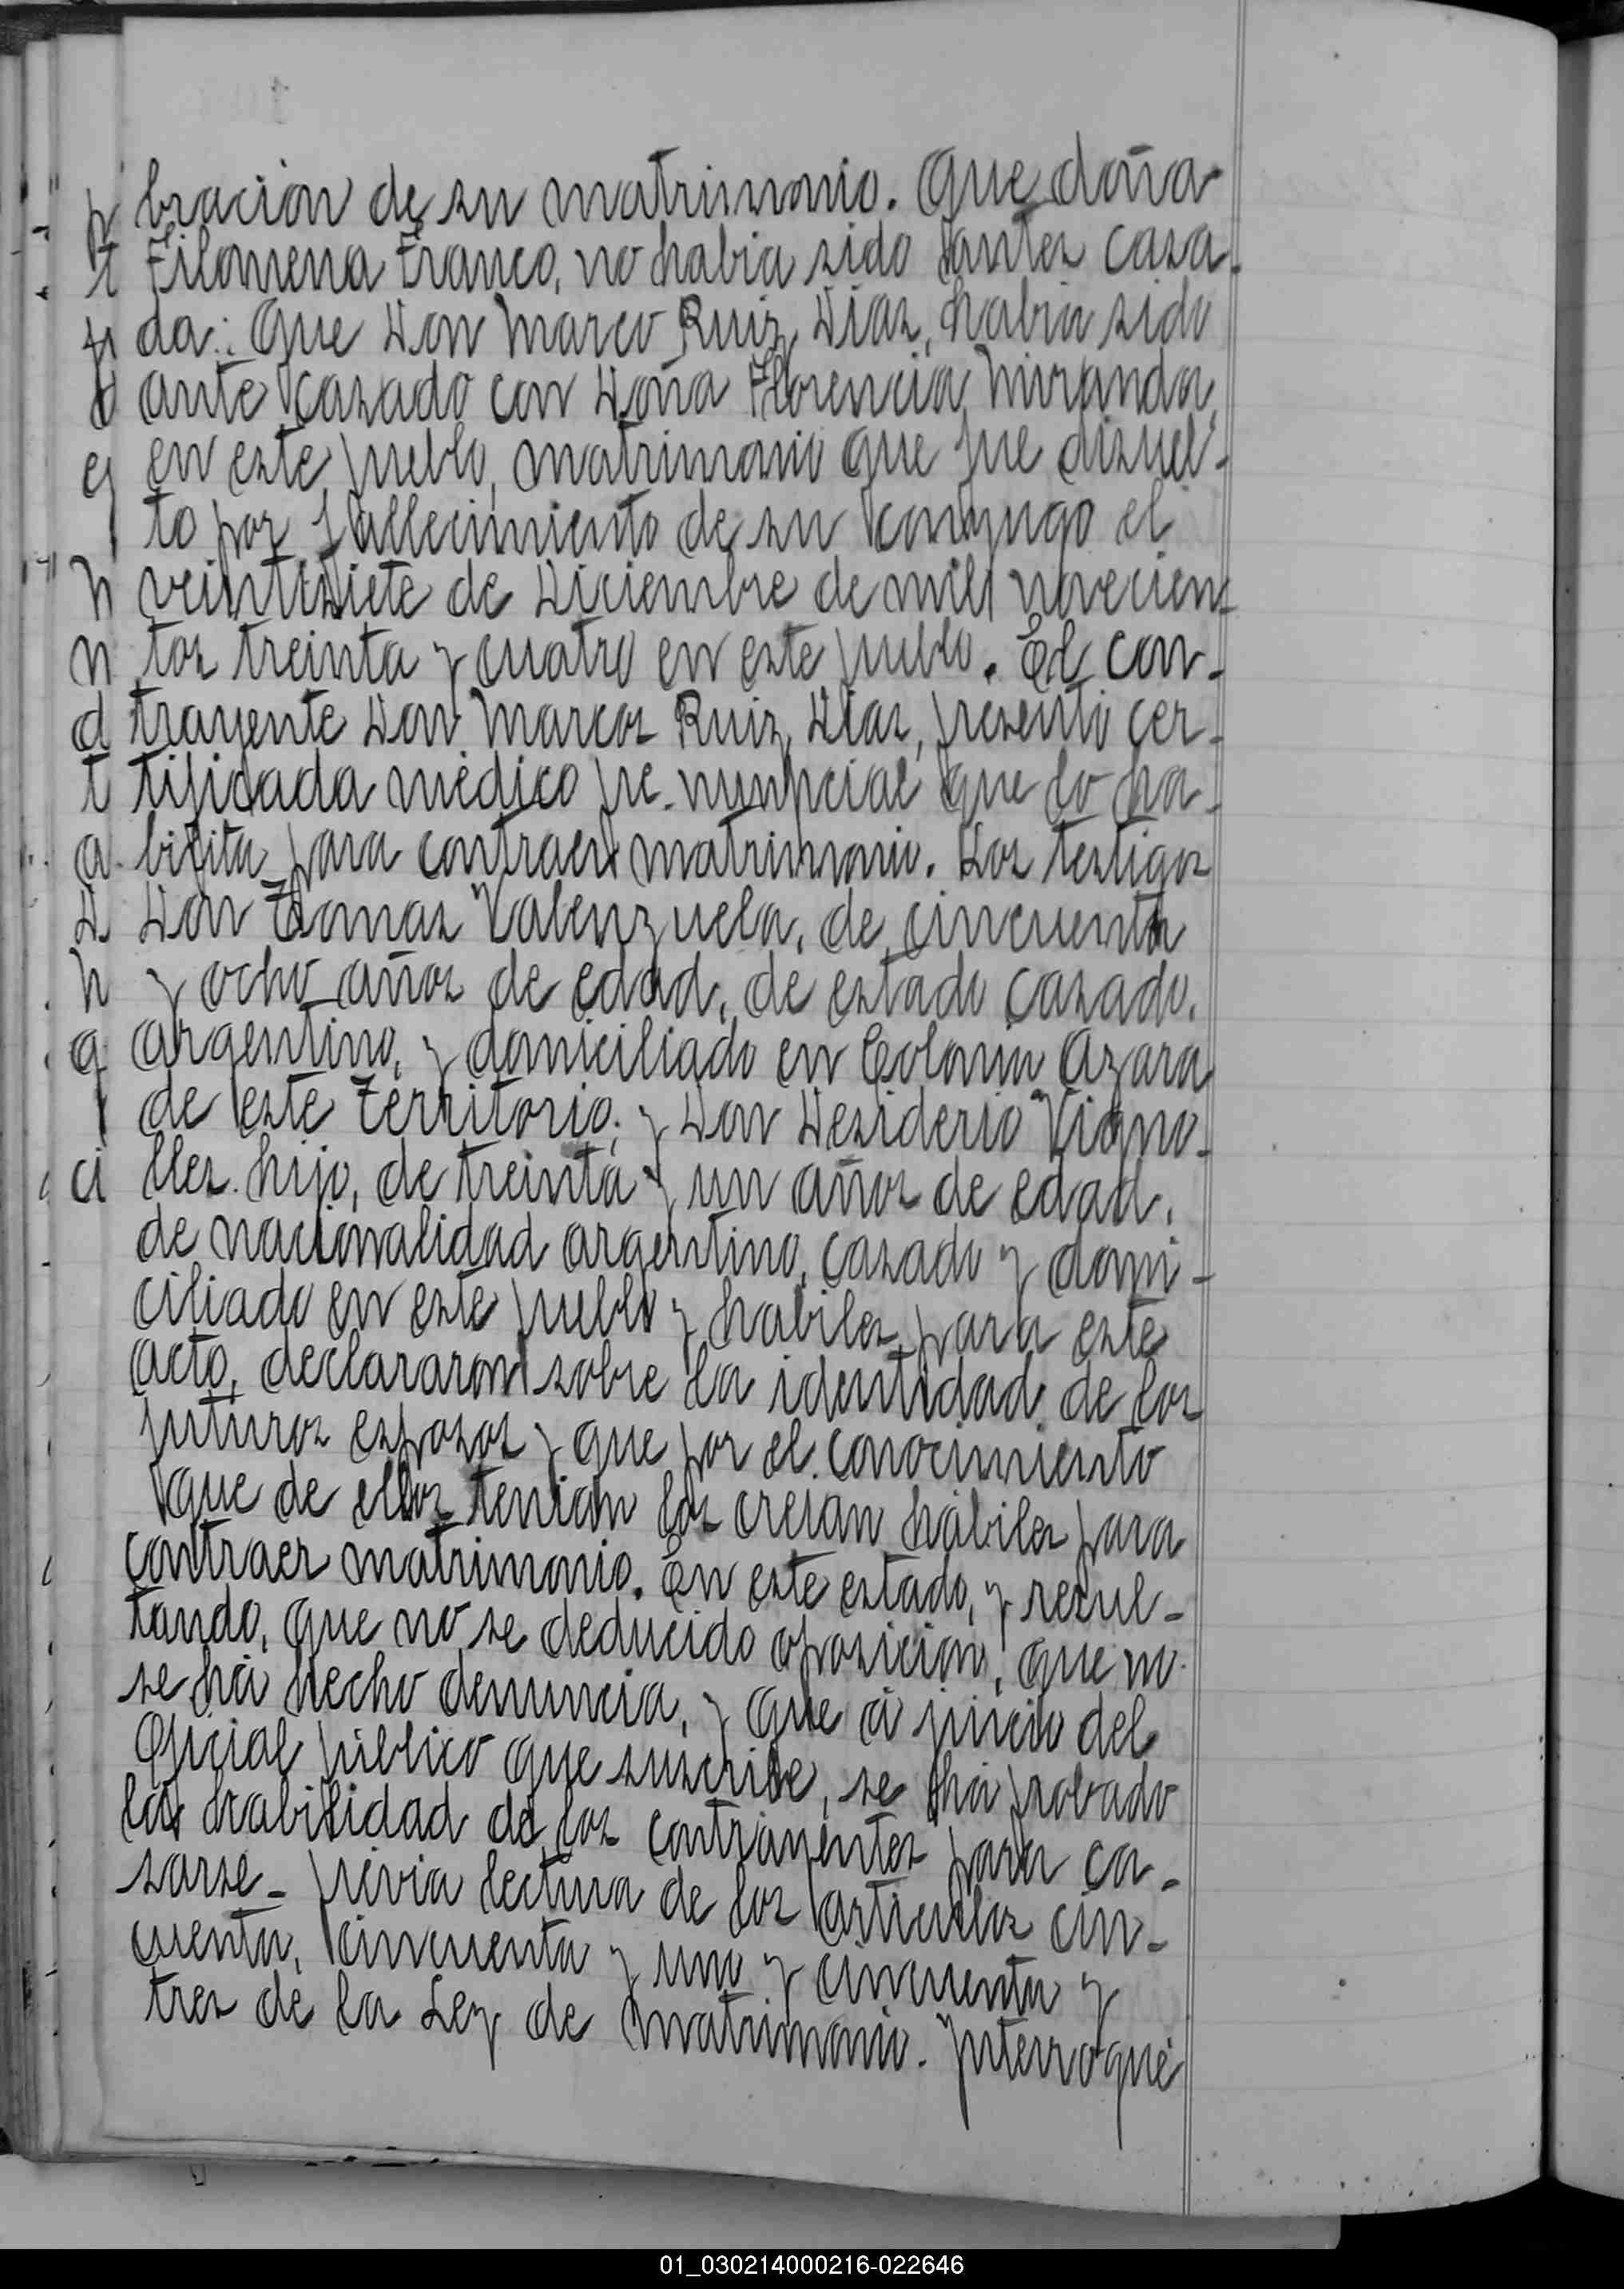 bracion de su matrimonio. Que doña
Filomena Franco, no habia sido antes casa-
da: Que Don Marco Ruiz Diaz, habia sido
ante casado con Doña Florencia Miranda,
en este pueblo, matrimonio que fue disuel-
to por fallecimiento de su conyugo el
veintisiete de Diciembre de mil novecien-
tos treinta y cuatro en este pueblo. El con-
trayente Don Marcos Ruiz Diaz, presentó cer-
tificada médico pre-nunpcial que lo ha-
bilita para contraer matrimonio. Los testigos
Don Tomas Valenzuela, de cincuenta
y ocho años de edad, de estado casado,
argentino, y domiciliado en Colonia Azara
de este Territorio; y Don Desiderio Vigno-
lles hijo, de treinta y un años de edad,
de nacionalidad argentino, casado y domi-
ciliado en este pueblo y habiles para este
acto, declararon sobre la identidad de los
futuros esposos y que por el conocimiento
que de ellos tenian los creian hábiles para
contraer matrimonio. En este estado, y resul-
tando, que no se deducido oposicion, que no
se há hecho denuncia, y que á juicio del
Oficial público que suscribe, se há probado
la habilidad de los contrayentes para ca-
sarse- prévia lectura de los articulos cin-
cuenta, cincuenta y uno y cincuenta y
tres de la Ley de Matrimonio. Interroqué
p
t
d
e
n
n
d
t
a
D
h
q
ci
01_030214000216-022646